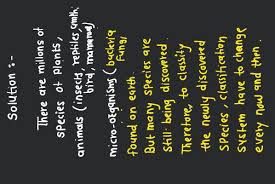 Solution :-
There are millons of
species of plants,
animals (insects, reptiles
bird, mammals)
micro-organisms ( bacteria
fungi
found on earth.
But many species are
still being discovered.
Therefore, to classify
the newly discovered
species, classification
system have to change
every now and then.